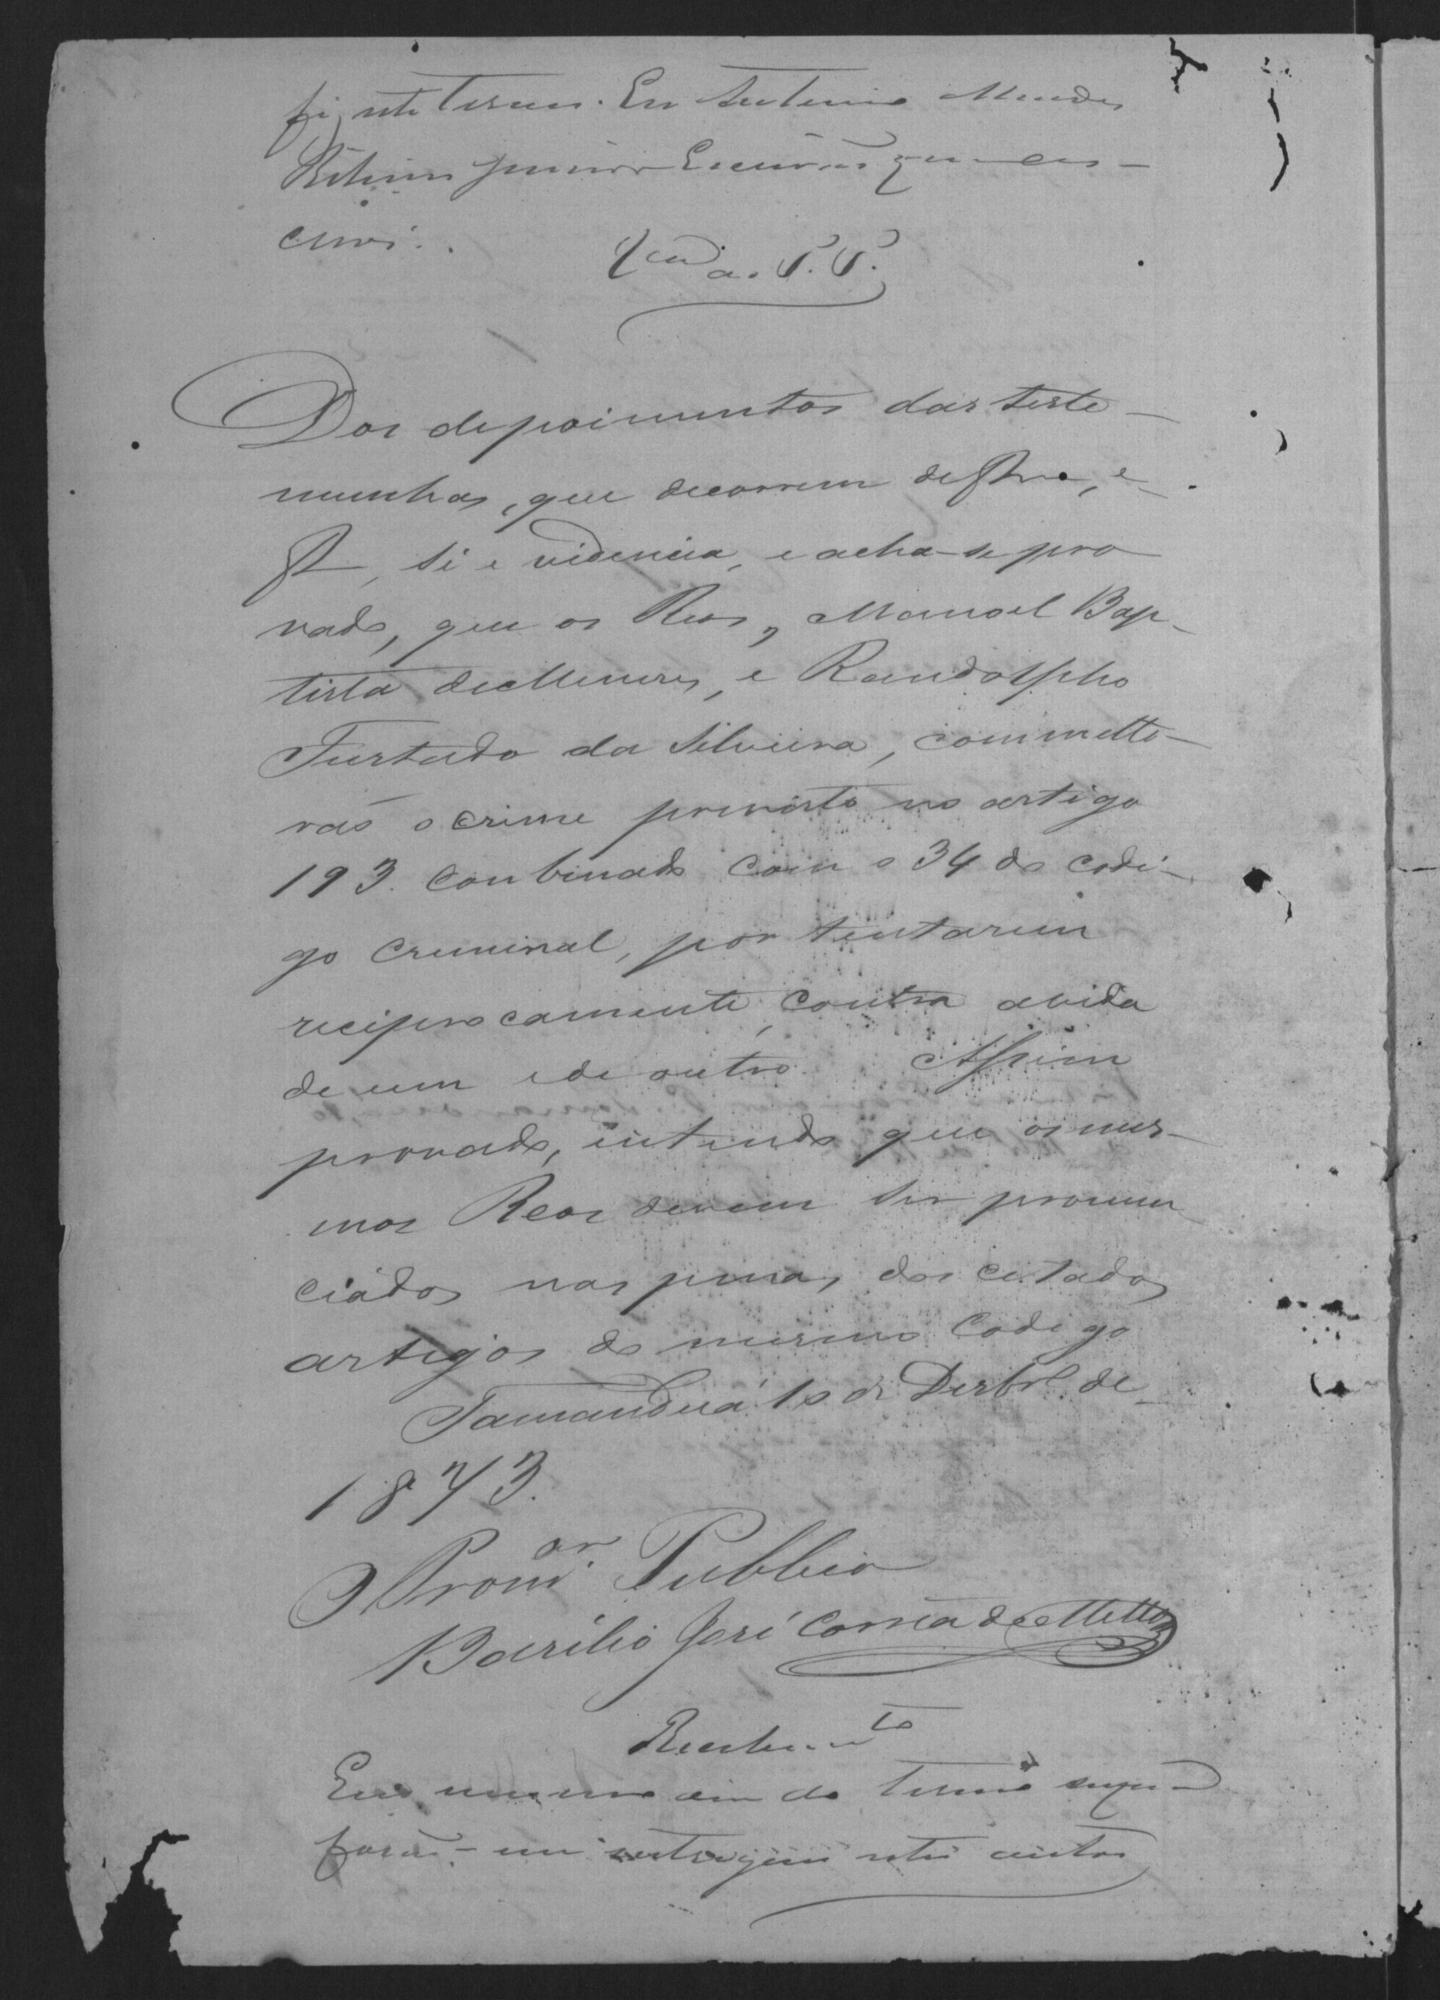 fiz este termo. Eu Antonio Mendes
Ribeiro Junior Escrivão que es-
crevi.
V.ta a. P. P.
Dos depoimentos das teste-
munhas, que decorrem de f e
f se evidencia, e acha-se pro
vado, que os Reos, Manoel Bap-
tista de Menezes, e Randolpho
Furtado da Silveira, commette-
rão o crime previsto no artigo
193. Combinado com o 34 do codi-
go criminal, por tentarem
reciprocamente, contra a vida
de um e de outro. Assim
provado, intendo que os mes-
mos Reos devem ser pronun
ciados nas penas, dos citados
artigos do mesmo Codigo
Tamanduá 10 de Dezbr.º de
1873.
O Prom.or Publico
Basilio José Corrêa de Mello
Recebim.to
Em o mesmo dia do termo supra
forão-me entregues estes autos